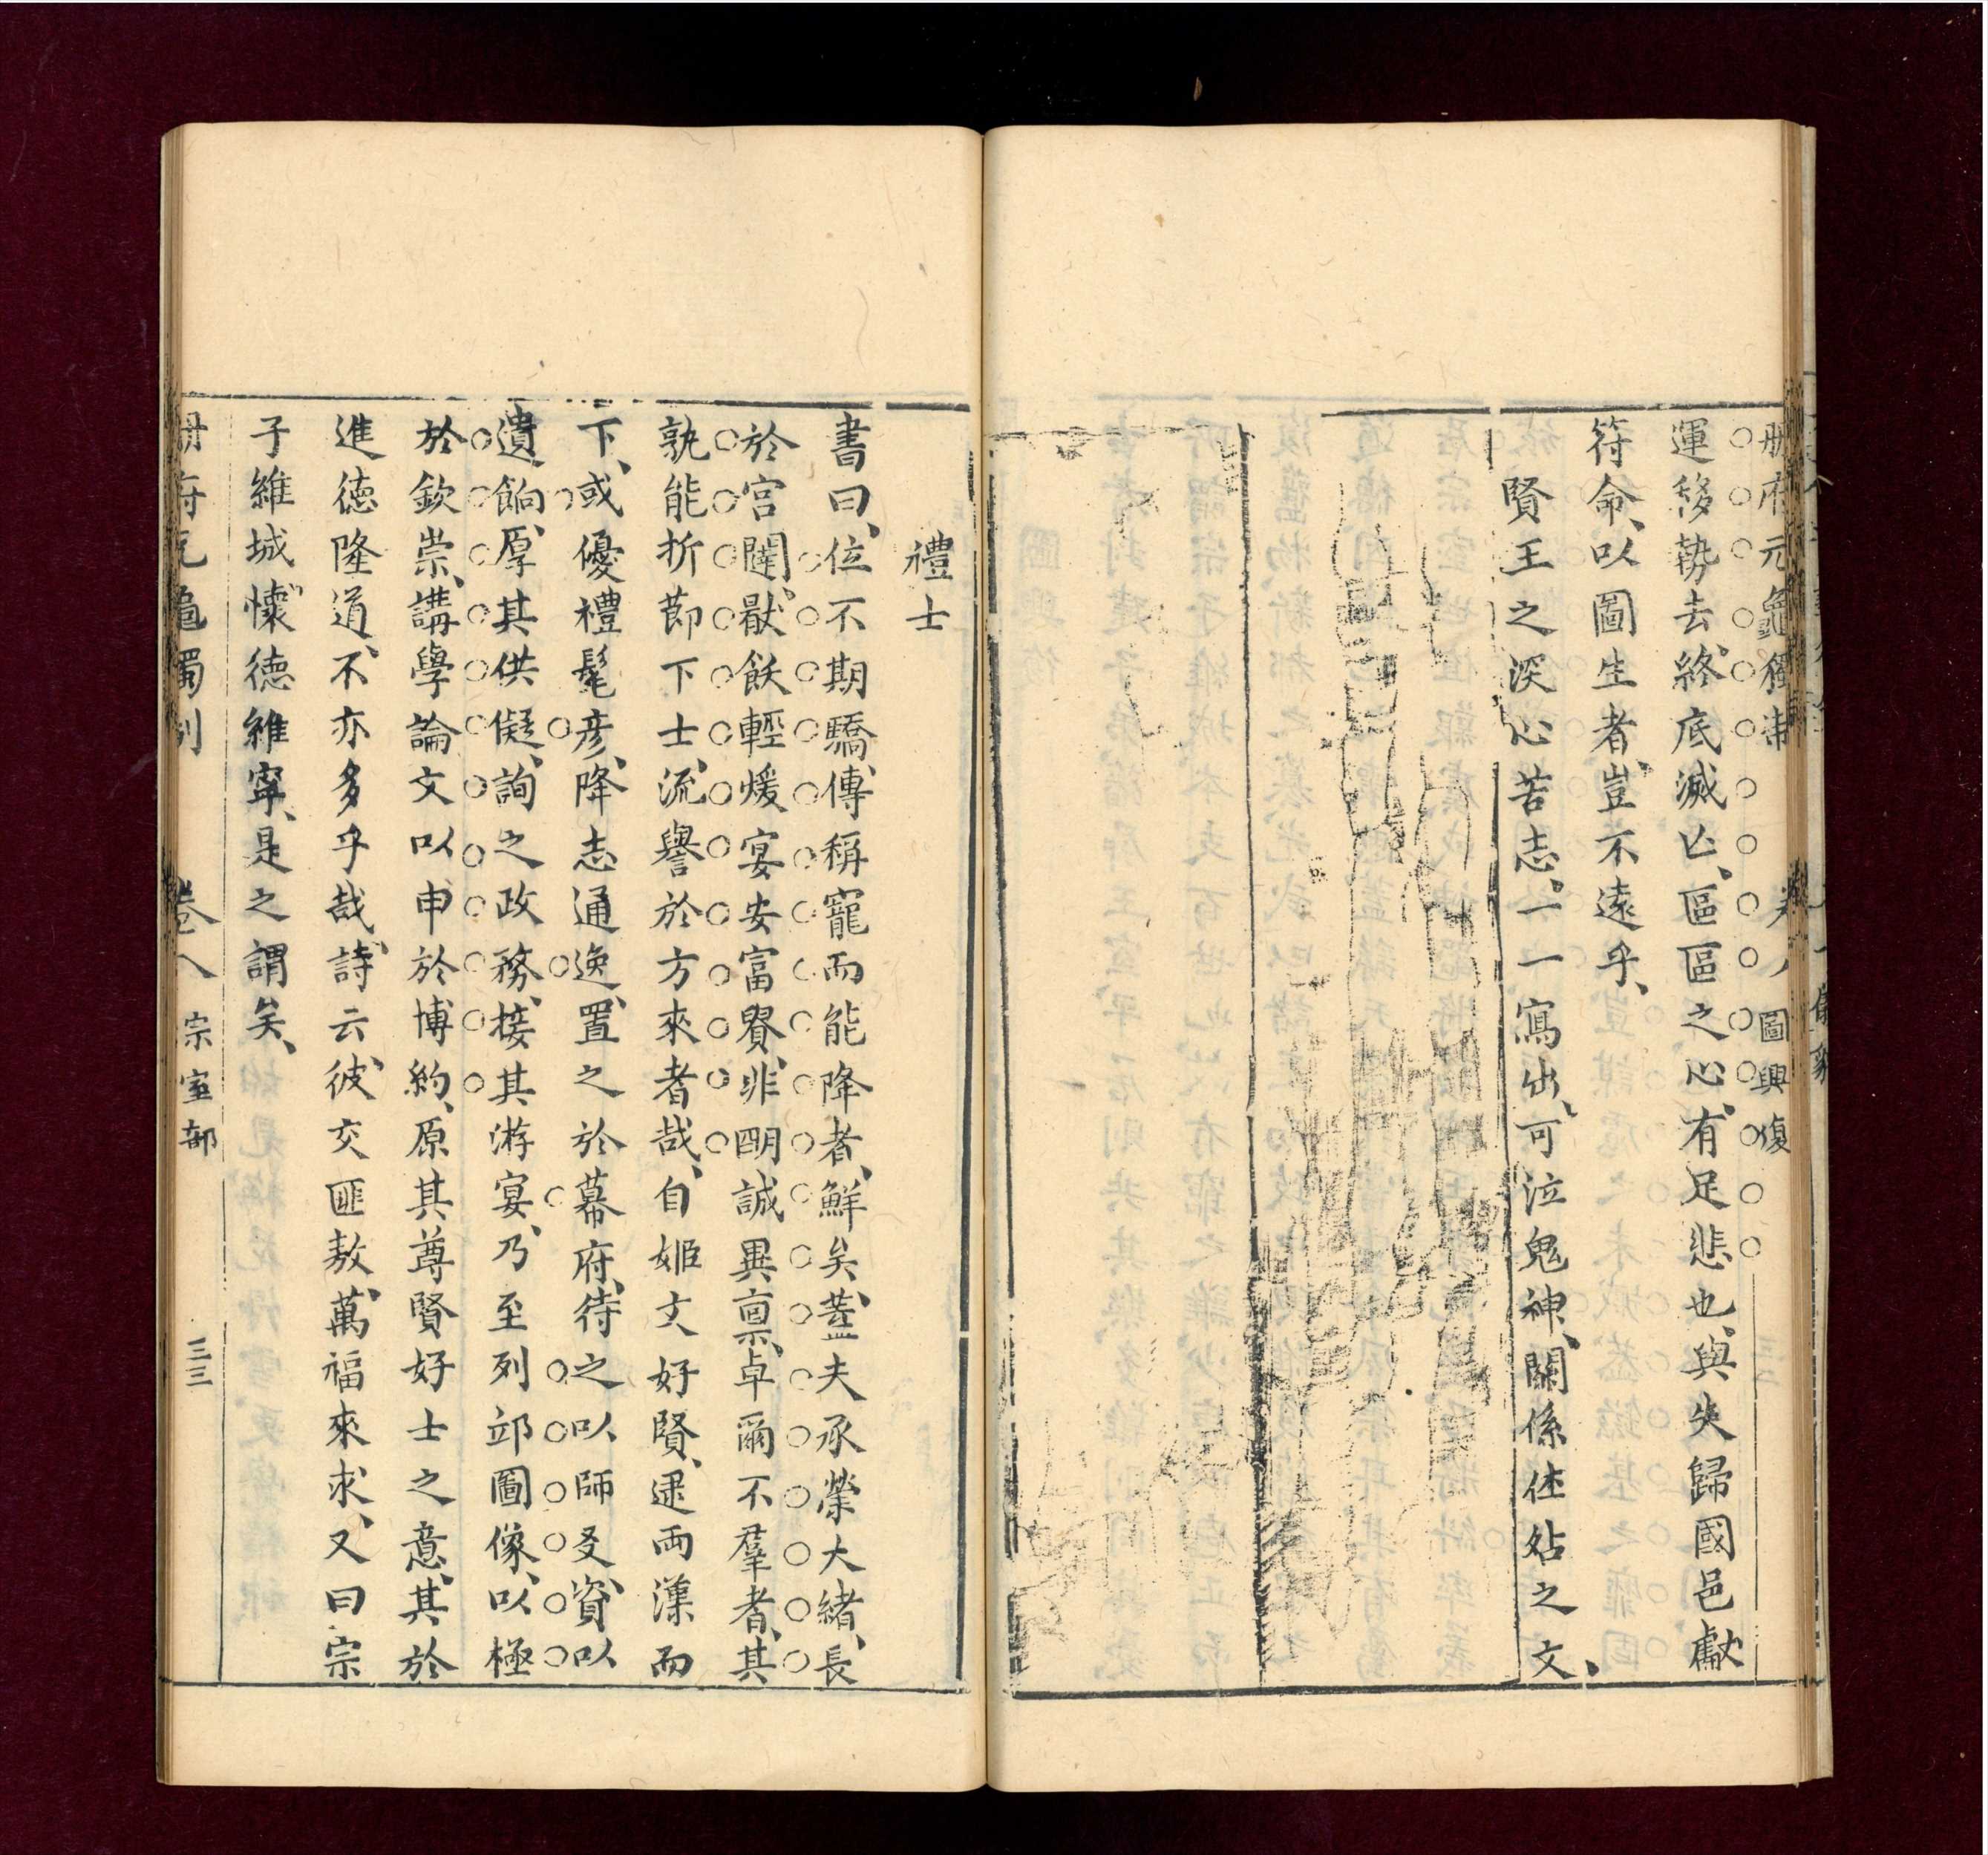 冊府元龜獨制 卷八 圖興復
運移勢去、終底滅亾、區區之心、有足悲也、與失歸國邑獻
符命、以圖生者、豈不遠乎、
賢王之深心苦志、一一寫出、可泣鬼神、關係世站之文、
禮士
書曰、位不期驕、傳稱寵而能降者、鮮矣、蓋夫承榮大緒、長
於宮闥、猒飫輕煖、宴安富貴、非明誠異稟、卓爾不羣者、其
孰能折節下士、流譽於方來者哉、自姬文好賢、逮兩漢而
下、或優禮髦彦、降志通逸、置之於幕府、待之以師友、資以
遺餉、厚其供儗、詢之政務、接其游宴、乃至列邛圖像、以極
於欽崇、講學論文以申於博約、原其尊賢好士之意、其於
進德隆道、不亦多乎哉、詩云、彼交匪敖、萬福來求、又曰宗
子維城懷德維寧、是之謂矣、
冊府元龜獨制 卷八 宗室部 三三